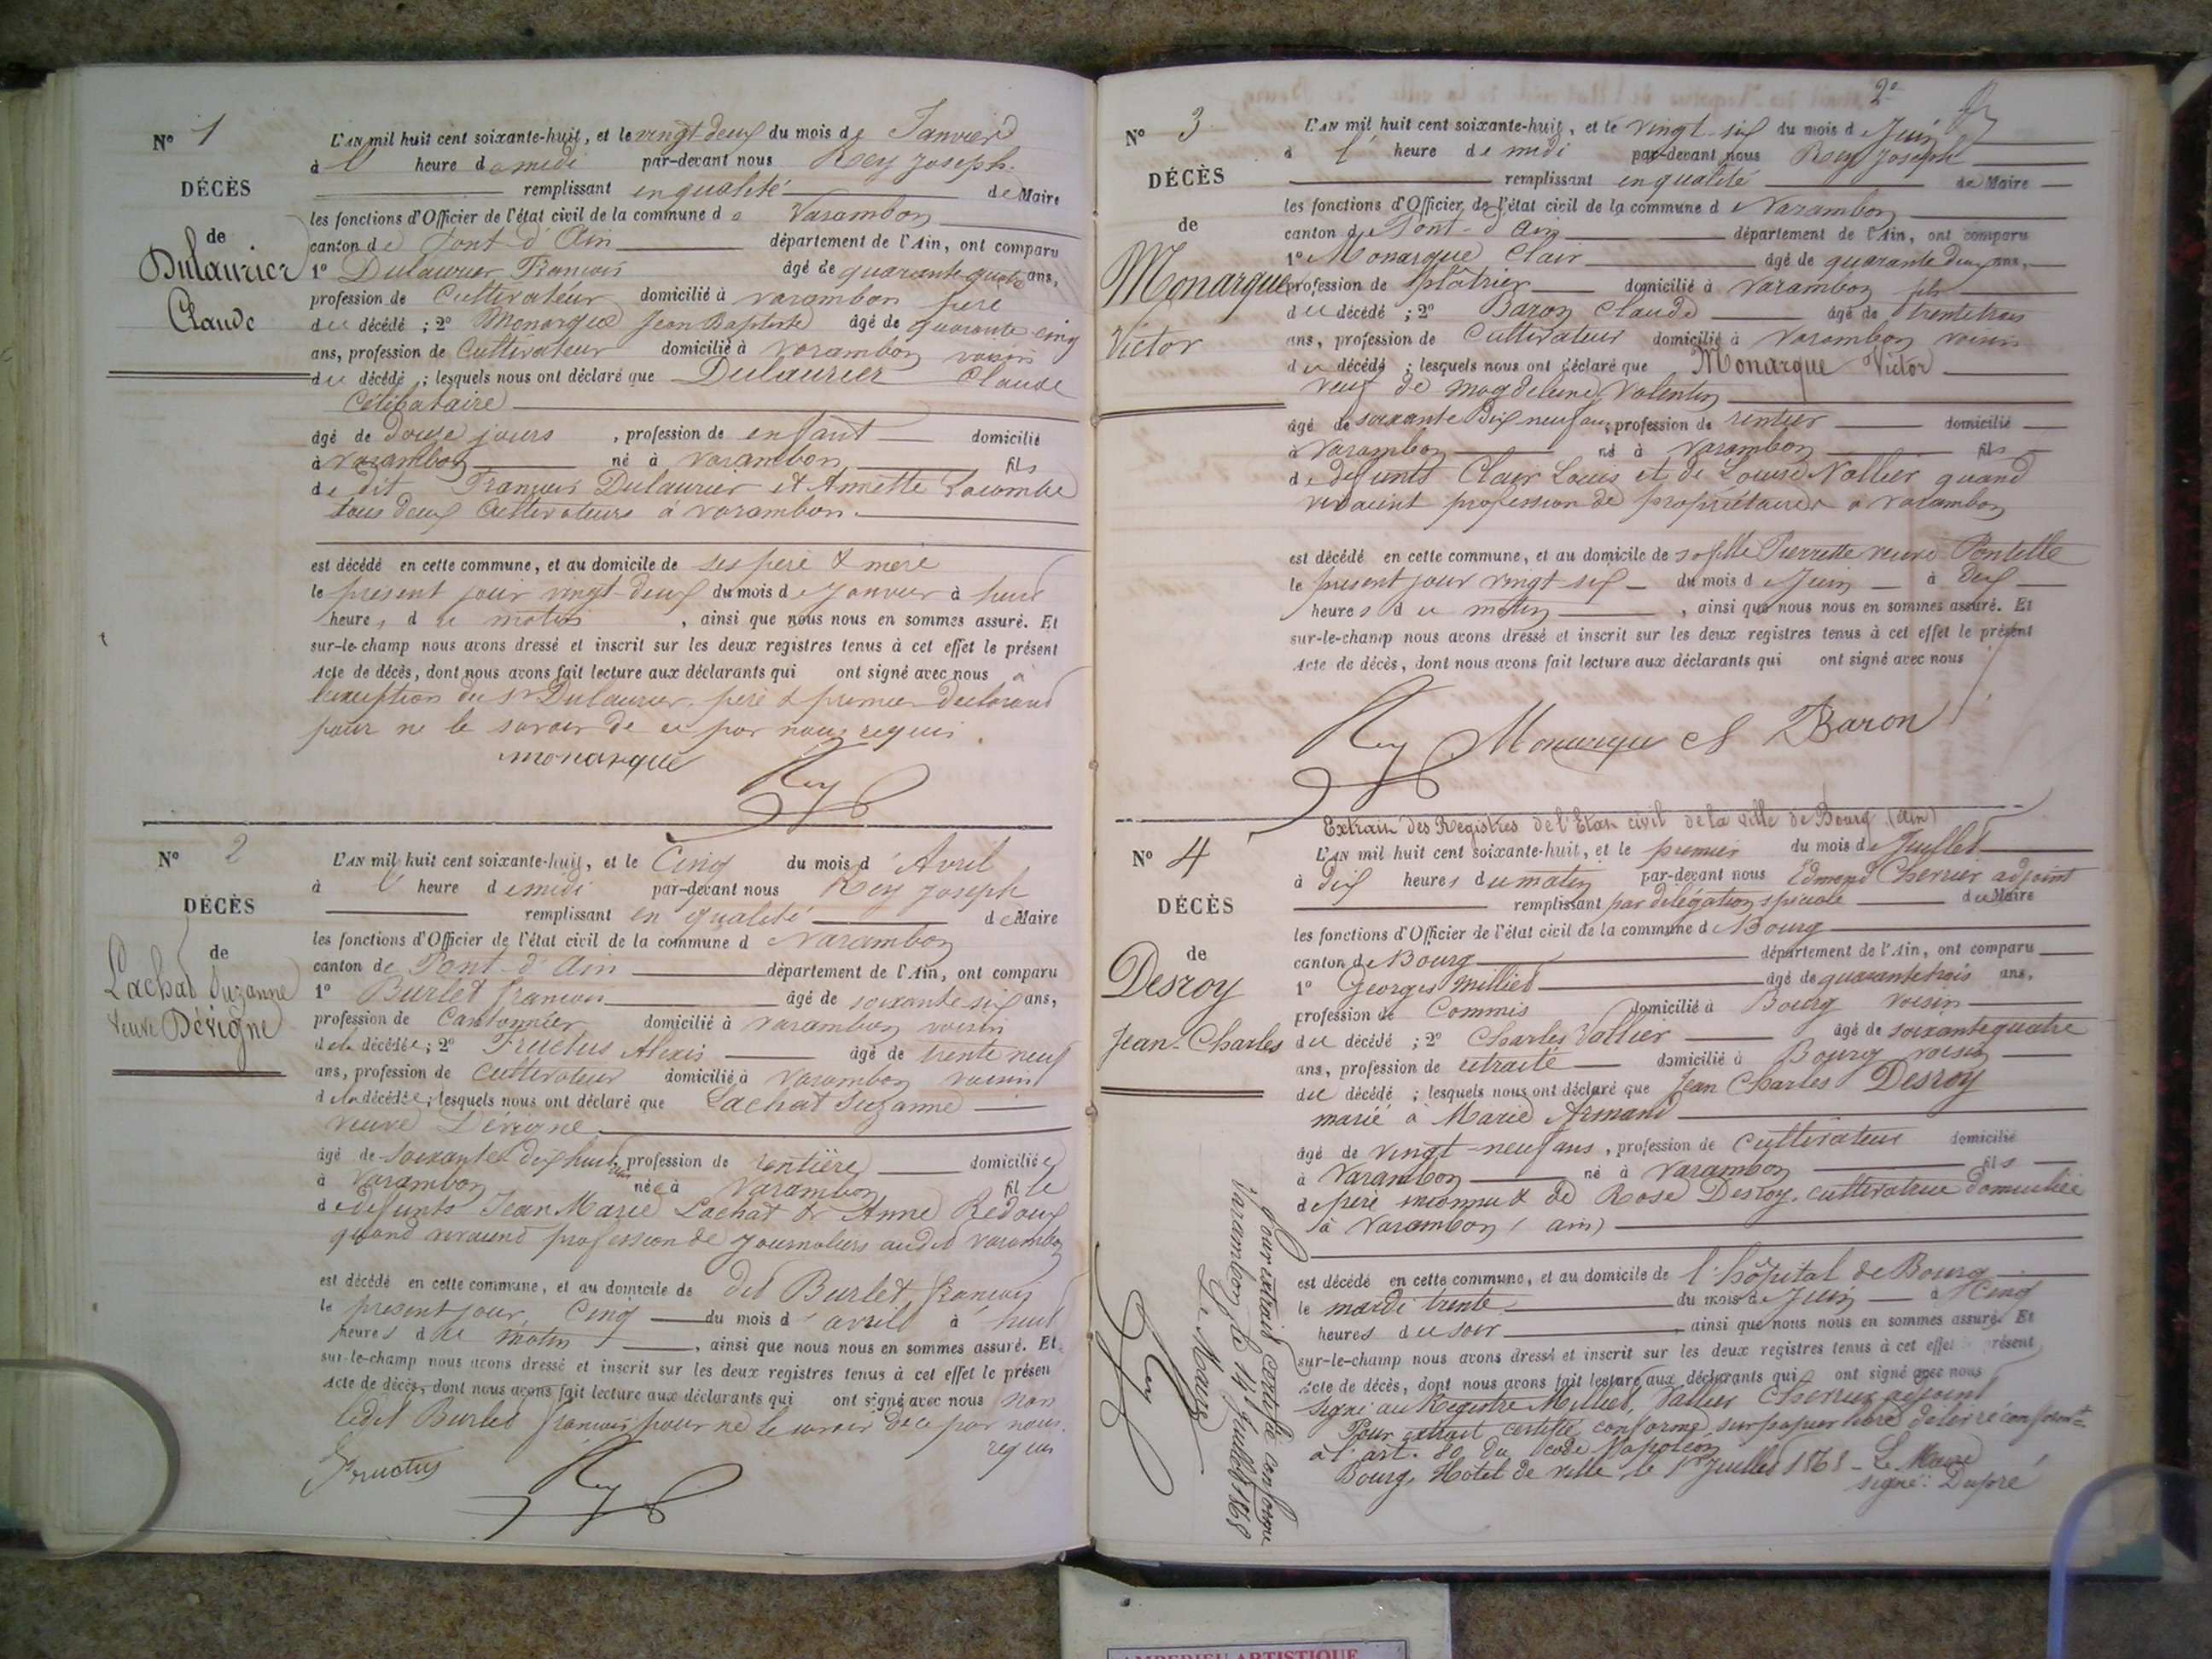 N° 1
DÉCÈS
de
Dulaurier
Claude
L'AN mil huit cent soixante-huit, et le vingt-deux du mois de Janvier
à l' heure de midi par-devant nous Rey Joseph
remplissant en qualité de Maire
les fonctions d'Officier de l'état civil de la commune de Varambon
canton de Pont d'Ain département de l'Ain, ont comparu
1° Dulaurier François âgé de quarante quatre ans,
profession de Cultivateur domicilié à varambon père
du décédé ; 2° Monarque Jean Baptiste âgé de quarante cinq
ans, profession de Cultivateur domicilié à varambon voisin
du décédé ; lesquels nous ont déclaré que Dulaurier Claude
Célibataire
âgé de douze jours , profession de enfant domicilié
à varambon né à varambon fils
de dit François Dulaurier et Annette Lacombe
tous deux Cultivateurs à varambon.
est décédé en cette commune, et au domicile de ses père & mère
le présent jour vingt-deux du mois de Janvier à huit
heures du matin , ainsi que nous nous en sommes assuré. Et
sur-le-champ nous avons dressé et inscrit sur les deux registres tenus à cet effet le présent
Acte de décès, dont nous avons fait lecture aux déclarants qui ont signé avec nous à
l'exception du Sr Dulaurier, père & premier déclarant
pour ne le savoir de ce par nous requis.
monarque
Rey
N° 2
DÉCÈS
de
Lachat Suzanne
Veuve Dévigne
L'AN mil huit cent soixante-huit, et le Cinq du mois d' Avril
à l' heure de midi par-devant nous Rey Joseph
remplissant en qualité de Maire
les fonctions d'Officier de l'état civil de la commune de Varambon
canton de Pont-d'Ain département de l'Ain, ont comparu
1° Burlet françois âgé de soixante six ans,
profession de Cantonnier domicilié à varambon voisin
de la décédée ; 2° Fructus Alexis âgé de trente neuf
ans, profession de Cultivateur domicilié à varambon voisin
de la décédée ; lesquels nous ont déclaré que Lachat Suzanne
veuve Dévigne
âgé de soixante dix huit ans profession de rentière domiciliée
à Varambon née à Varambon fille
de défunts Jean Marie Lachat & Anne Redoux
quand vivaient profession de journaliers audit varambon
est décédé en cette commune, et au domicile de dit Burlet françois
le présent jour Cinq du mois d' avril à huit
heures du matin , ainsi que nous nous en sommes assuré. Et
sur-le-champ nous avons dressé et inscrit sur les deux registres tenus à cet effet le présen
Acte de décès, dont nous avons fait lecture aux déclarants qui ont signé avec nous non
ledit Burlet françois pour ne le savoir de ce par nous
requis
Fructus
Rey
2e
N° 3
DÉCÈS
de
Monarque
Victor
L'AN mil huit cent soixante-huit, et le vingt-six du mois de Juin
à l' heure de midi par-devant nous Rey Joseph
remplissant en qualité de Maire
les fonctions d'Officier de l'état civil de la commune de Varambon
canton de Pont-d'Ain département de l'Ain, ont comparu
1° Monarque Clair âgé de quarante deux ans,
profession de plâtrier domicilié à varambon fils
du décédé ; 2° Baron Claude âgé de trente trois
ans, profession de Cultivateur domicilié à varambon voisin
du décédé ; lesquels nous ont déclaré que Monarque Victor
veuf de magdeleine Valentin
âgé de soixante Dix neuf ans, profession de rentier domicilié
à Varambon né à Varambon fils
de défunts Clair Louis et de Louise Vallier quand
vivaient profession de propriétaires à varambon
est décédé en cette commune, et au domicile de sa fille Pierrette veuve Pontille
le présent jour vingt six du mois de Juin à dix
heures du matin , ainsi que nous nous en sommes assuré. Et
sur-le-champ nous avons dressé et inscrit sur les deux registres tenus à cet effet le présent
Acte de décès, dont nous avons fait lecture aux déclarants qui ont signé avec nous
Rey Monarque Cl Baron
Extrait des Registres de l'Etat civil de la ville de Bourg (Ain)
N° 4
DÉCÈS
de
Desroy
Jean-Charles
L'AN mil huit cent soixante-huit, et le premier du mois de Juillet
à dix heures du matin par-devant nous Edmond Cherrier adjoint
remplissant par délégation spéciale du Maire
les fonctions d'Officier de l'état civil de la commune de Bourg
canton de Bourg département de l'Ain, ont comparu
1° Georges Milliet âgé de quarante trois ans,
profession de Commis domicilié à Bourg voisin
du décédé ; 2° Charles Vallier âgé de soixante quatre
ans, profession de retraité domicilié à Bourg voisin
du décédé ; lesquels nous ont déclaré que Jean Charles Desroy
marié à Marie Armand
âgé de vingt-neuf ans, profession de cultivateur domicilié
à Varambon né à Varambon fils
de père inconnu & de Rose Desroy, cultivatrice domiciliée
à Varambon (ain)
est décédé en cette commune, et au domicile de l'hôpital de Bourg
le mardi trente du mois de Juin à Cinq
heures du soir , ainsi que nous nous en sommes assuré. Et
sur-le-champ nous avons dressé et inscrit sur les deux registres tenus à cet effet le présent
Acte de décès, dont nous avons fait lecture aux déclarants qui ont signé avec nous
Signé au Registre Milliet, Vallier Cherrier adjoint
Pour extrait certifié conforme, sur papier libre délivré conformt
à l'art. 80 du code Napoléon
Bourg, Hotel de ville le 1er Juillet 1868 - Le Maire
signé: Dupré
Pour extrait certifié conforme
Varambon le 14 Juillet 1868
Le Maire
Rey
AMBERIEU ARTISTIQUE